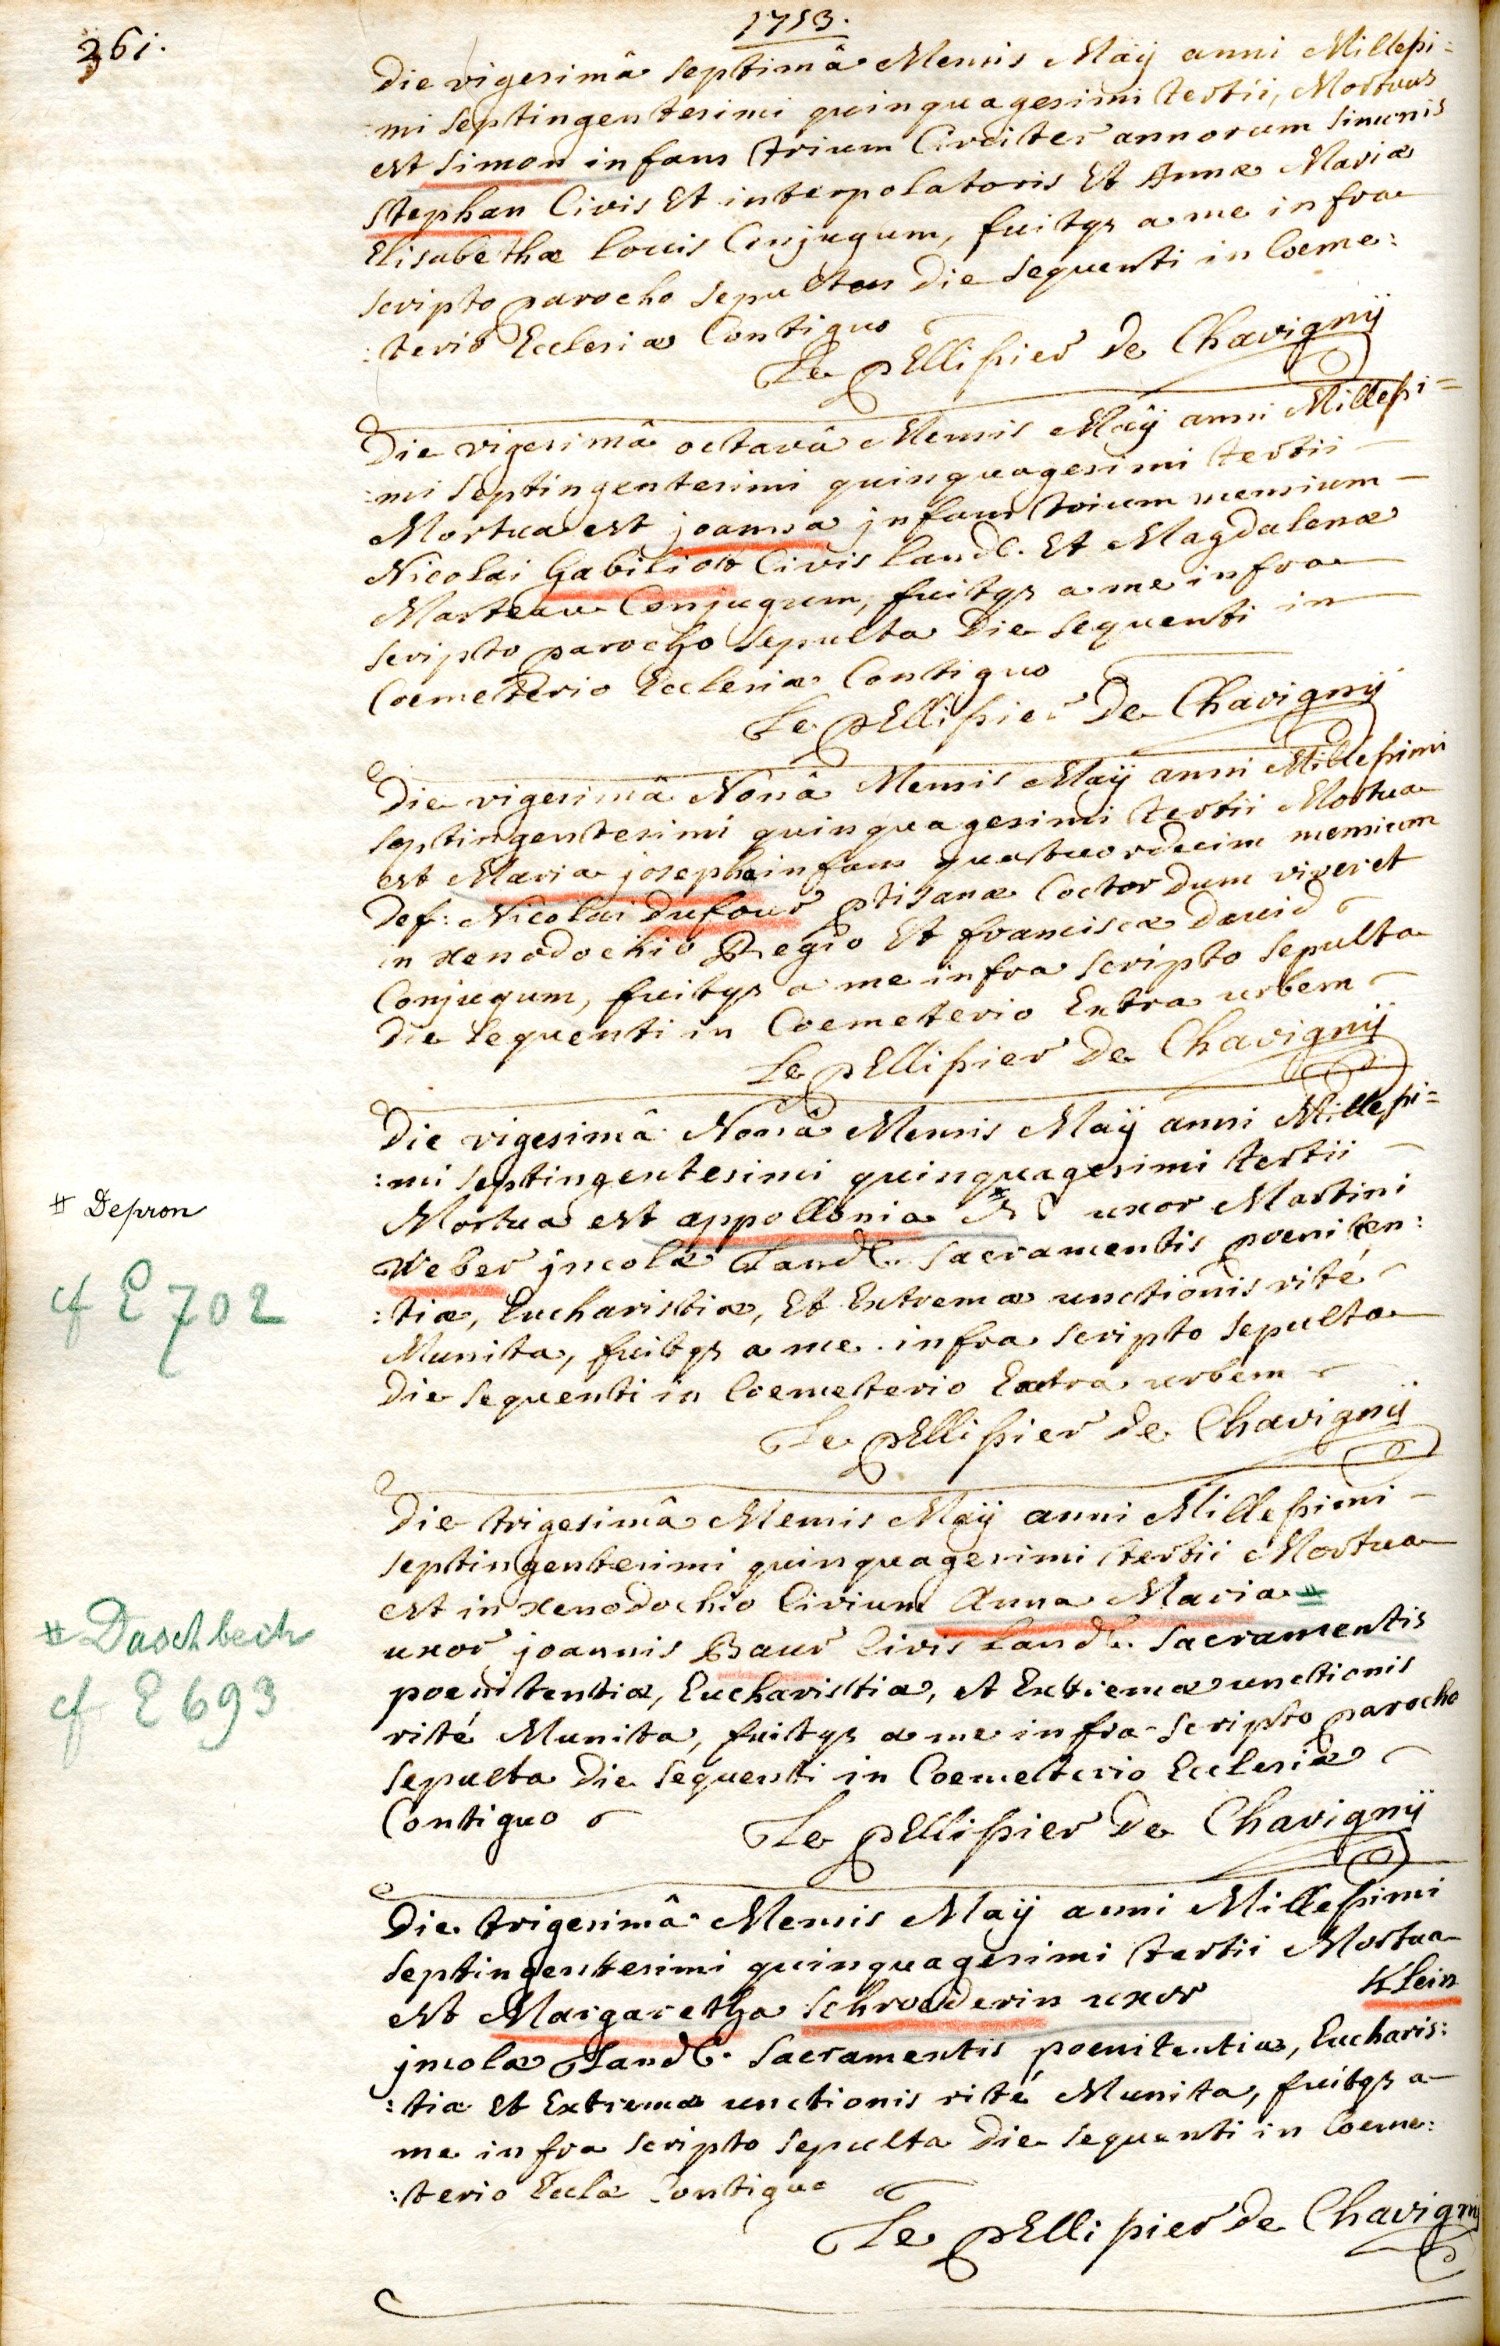 261.
1753.
Die vigesimâ septimâ Mensis Maÿ anni Millessi=
:mi septingentesimi quinquagesimi tertii, Mortuus
est Simon infans trium Circiter annorum Simonis
Stephan Civis Et interpolatoris Et Annæ Mariæ
Elisabethæ Louis Conjugum, fuitqȝ a me infra
scripto parocho sepultus Die sequenti in Coeme:
:terio Ecclesiæ Contiguo
Le pEllissier De Chavignÿ
Die vigesimâ octavâ Mensis Maÿ anni Millessi=
:mi septingentesimi quinquagesimi tertii
Mortua est joanna jnfans trium mensium
Nicolai Gabiliot Civis Land. Et Magdalenæ
Marteau Conjugum, fuitqȝ a me infra
scripto parocho sepulta Die sequenti in
Coemeterio Ecclesiæ Contiguo
Le pEllissier De Chavignÿ
Die vigesimâ Nonâ Mensis Maÿ anni Millessimi
septingentesimi quinquagesimi tertii Mortua
est Maria josepha infans quatuordecim mensium
Def: Nicolai Dufour ptisanæ Coctor dum viveret
in xenodochio Regio Et franciscæ David
Conjugum, fuitqȝ a me infra scripto sepulta
Die sequenti in Coemeterio Extra urbem
Le pEllissier De Chavignÿ
Die vigesimâ Nonâ Mensis Maÿ anni Millessi=
:mi septingentesimi quinquagesimi tertii
# Depron
Mortua est appollonia # uxor Martini
Weber jncolæ Land. sacramentis poeniten:
cf E 702
:tiæ, Eucharistiæ, Et Extremæ unctionis rité
Munita, fuitqȝ a me infra scripto sepulta
Die sequenti in Coemeterio Extra urbem
Le pEllissier De Chavignÿ
Die trigesimâ Mensis Maÿ anni Millessimi
septingentesimi quinquagesimi tertii Mortua
est in xenodochio Civium Anna Maria #
# Daschbech
uxor joannis Baur Civis Land. sacramentis
cf E 693
poenitentiæ, Eucharistiæ, et Extremæ unctionis
rité Munita, fuitqȝ a me infra-scripto parocho
sepulta Die sequenti in Coemeterio Ecclesiæ
Contiguo
Le pEllissier De Chavignÿ
Die trigesimâ Mensis Maÿ anni Millessimi
septingentesimi quinquagesimi tertii Mortua
est Margaretha schroederin uxor Klein
jncolæ Land. sacramentis poenitentiæ, Eucharis:
:tiæ Et Extremæ unctionis rité Munita, fuitqȝ a
me infra scripto sepulta Die sequenti in Coeme:
:terio Eclæ Contiguo
Le pEllissier de Chavignÿ